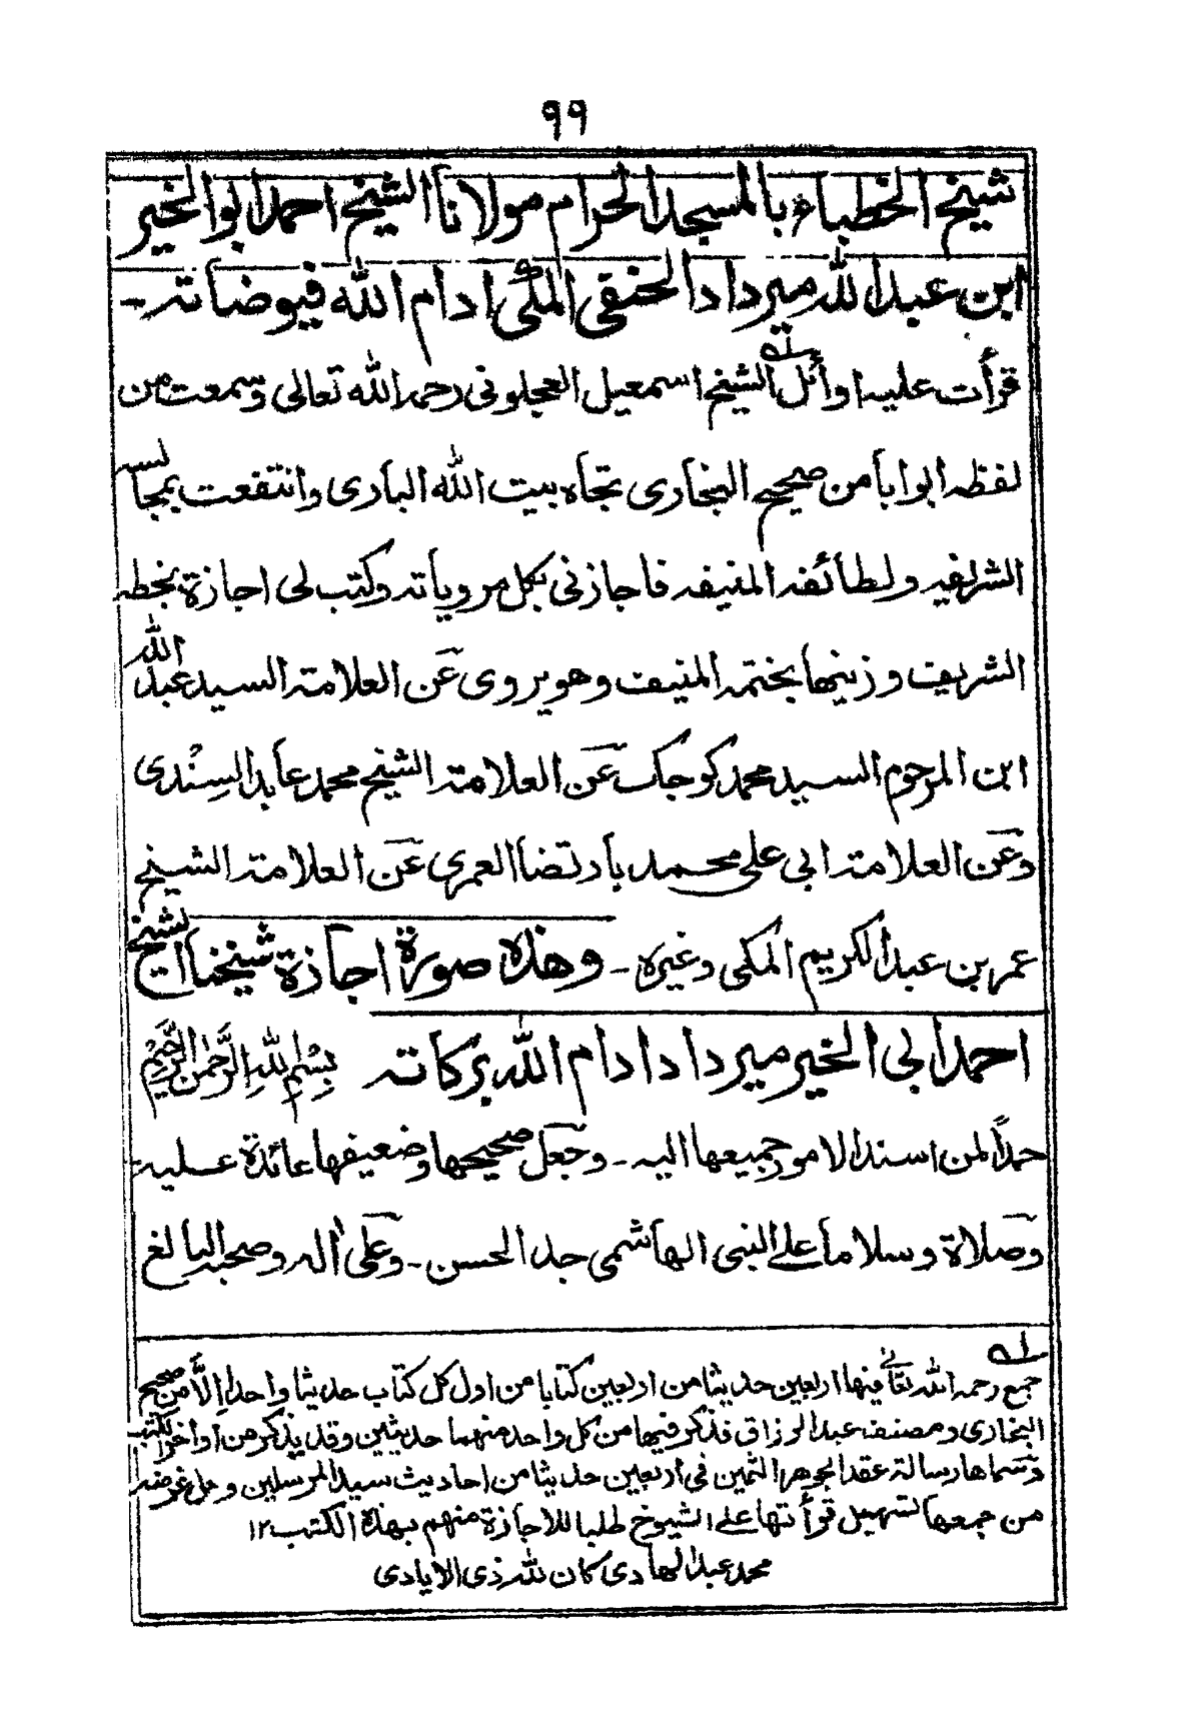 ٩٩
شيخ الخطباء بالمسجد الحرام مولانا الشيخ احمد ابو الخير
ابن عبد الله ميرداد الحنفى المكى ادام الله فيوضاته ـ
قرأت عليه اوأئل الشيخ اسمعيل العجلونى رحمه الله تعالى وسمعت من
لفظه ابوابا من صحيح البخارى تجاه بيت الله البارى وانتفعت بمجالسه
الشريفه ولطائفه المنيفه فاجازنى بكل مروياته وكتب لى اجازة بخطه
الشريف وزينها بختمه المنيف وهو يروى عن العلامة السيد عبد الله
ابن المرحوم السيد محمد كوجك عن العلامة الشيخ محمد عابد السِنْدى
وعن العلامة ابى على محمد بارتضا العمرى عن العلامة الشيخ
عمر بن عبد الكريم المكى وغيره ـ وهذه صورة اجازة شيخنا الشيخ
احمد ابى الخير ميرداد ادام الله بركاته بِسْمِ اللهِ الرَّحْمٰنِ الرَّحِيْمِ
حمدًا لمن اسند الامور جميعها اليه ـ وجعل صحيحها وضعيفها عائدة عليه
وصلاة وسلاما على النبى الهاشمى جد الحسن ـ وعلى اٰله وصحبه البالغ
له
جمع رحمه الله تعالى فيها اربعين حديثا من اربعين كتابا من اول كل كتاب حديثا واحدا إلاّ من صحيح
البخارى ومصنف عبد الرزاق فذكر فيها من كل واحد منهما حديثين وقد يذكر من أواخر الكتب
وسماها رسالة عقد الجوهر الثمين فى أربعين حديثا من احاديث سيد المرسلين وجل غرضه
من جمعها تسهيل قرأتها على الشيوخ طلبا للاجازة منهم بهذه الكتب ١٢
محمد عبد الهادى كان لله ذى الايادى